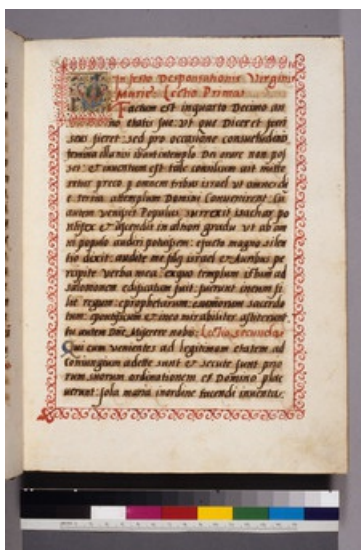 In festo Desponsationis Virginis
Marie: Lectio Prima
Factum est inquarto Decimo an
no etatis sue. ut que Diceret
seus fieret. sed pro occasione consuetudo
femina illa non in templo Dei orare non pos
set. & inventum est tale consilium ut mitte
retur preco p omnem tribus israel ut omnes di
e tertia attemplum Domini Convenirent. Cu
autem venisset Populus surrexit isachar po
ntifex & ascendit in altiori gradu ut ab om
ni populo audiri potuisset: efacto magno silen
tio dixit: audite me filij israel & auribus pe
rcipite verba mea. exquo templum istum ad
salomonem edificatum fuit. fuerunt ineum fi
lie regum: eprophetarum: sacerdo
tum: epontificum & ineo mirabiliter
tu autem Dne Miserere nobis: Lectio secunda
Qui cum venientes ad legitimam etatem ad
coniungium adepte sunt & secute sunt prio
rum suorum ordinationem et Domino plac
uerunt. sola maria inordine facendi inventa.